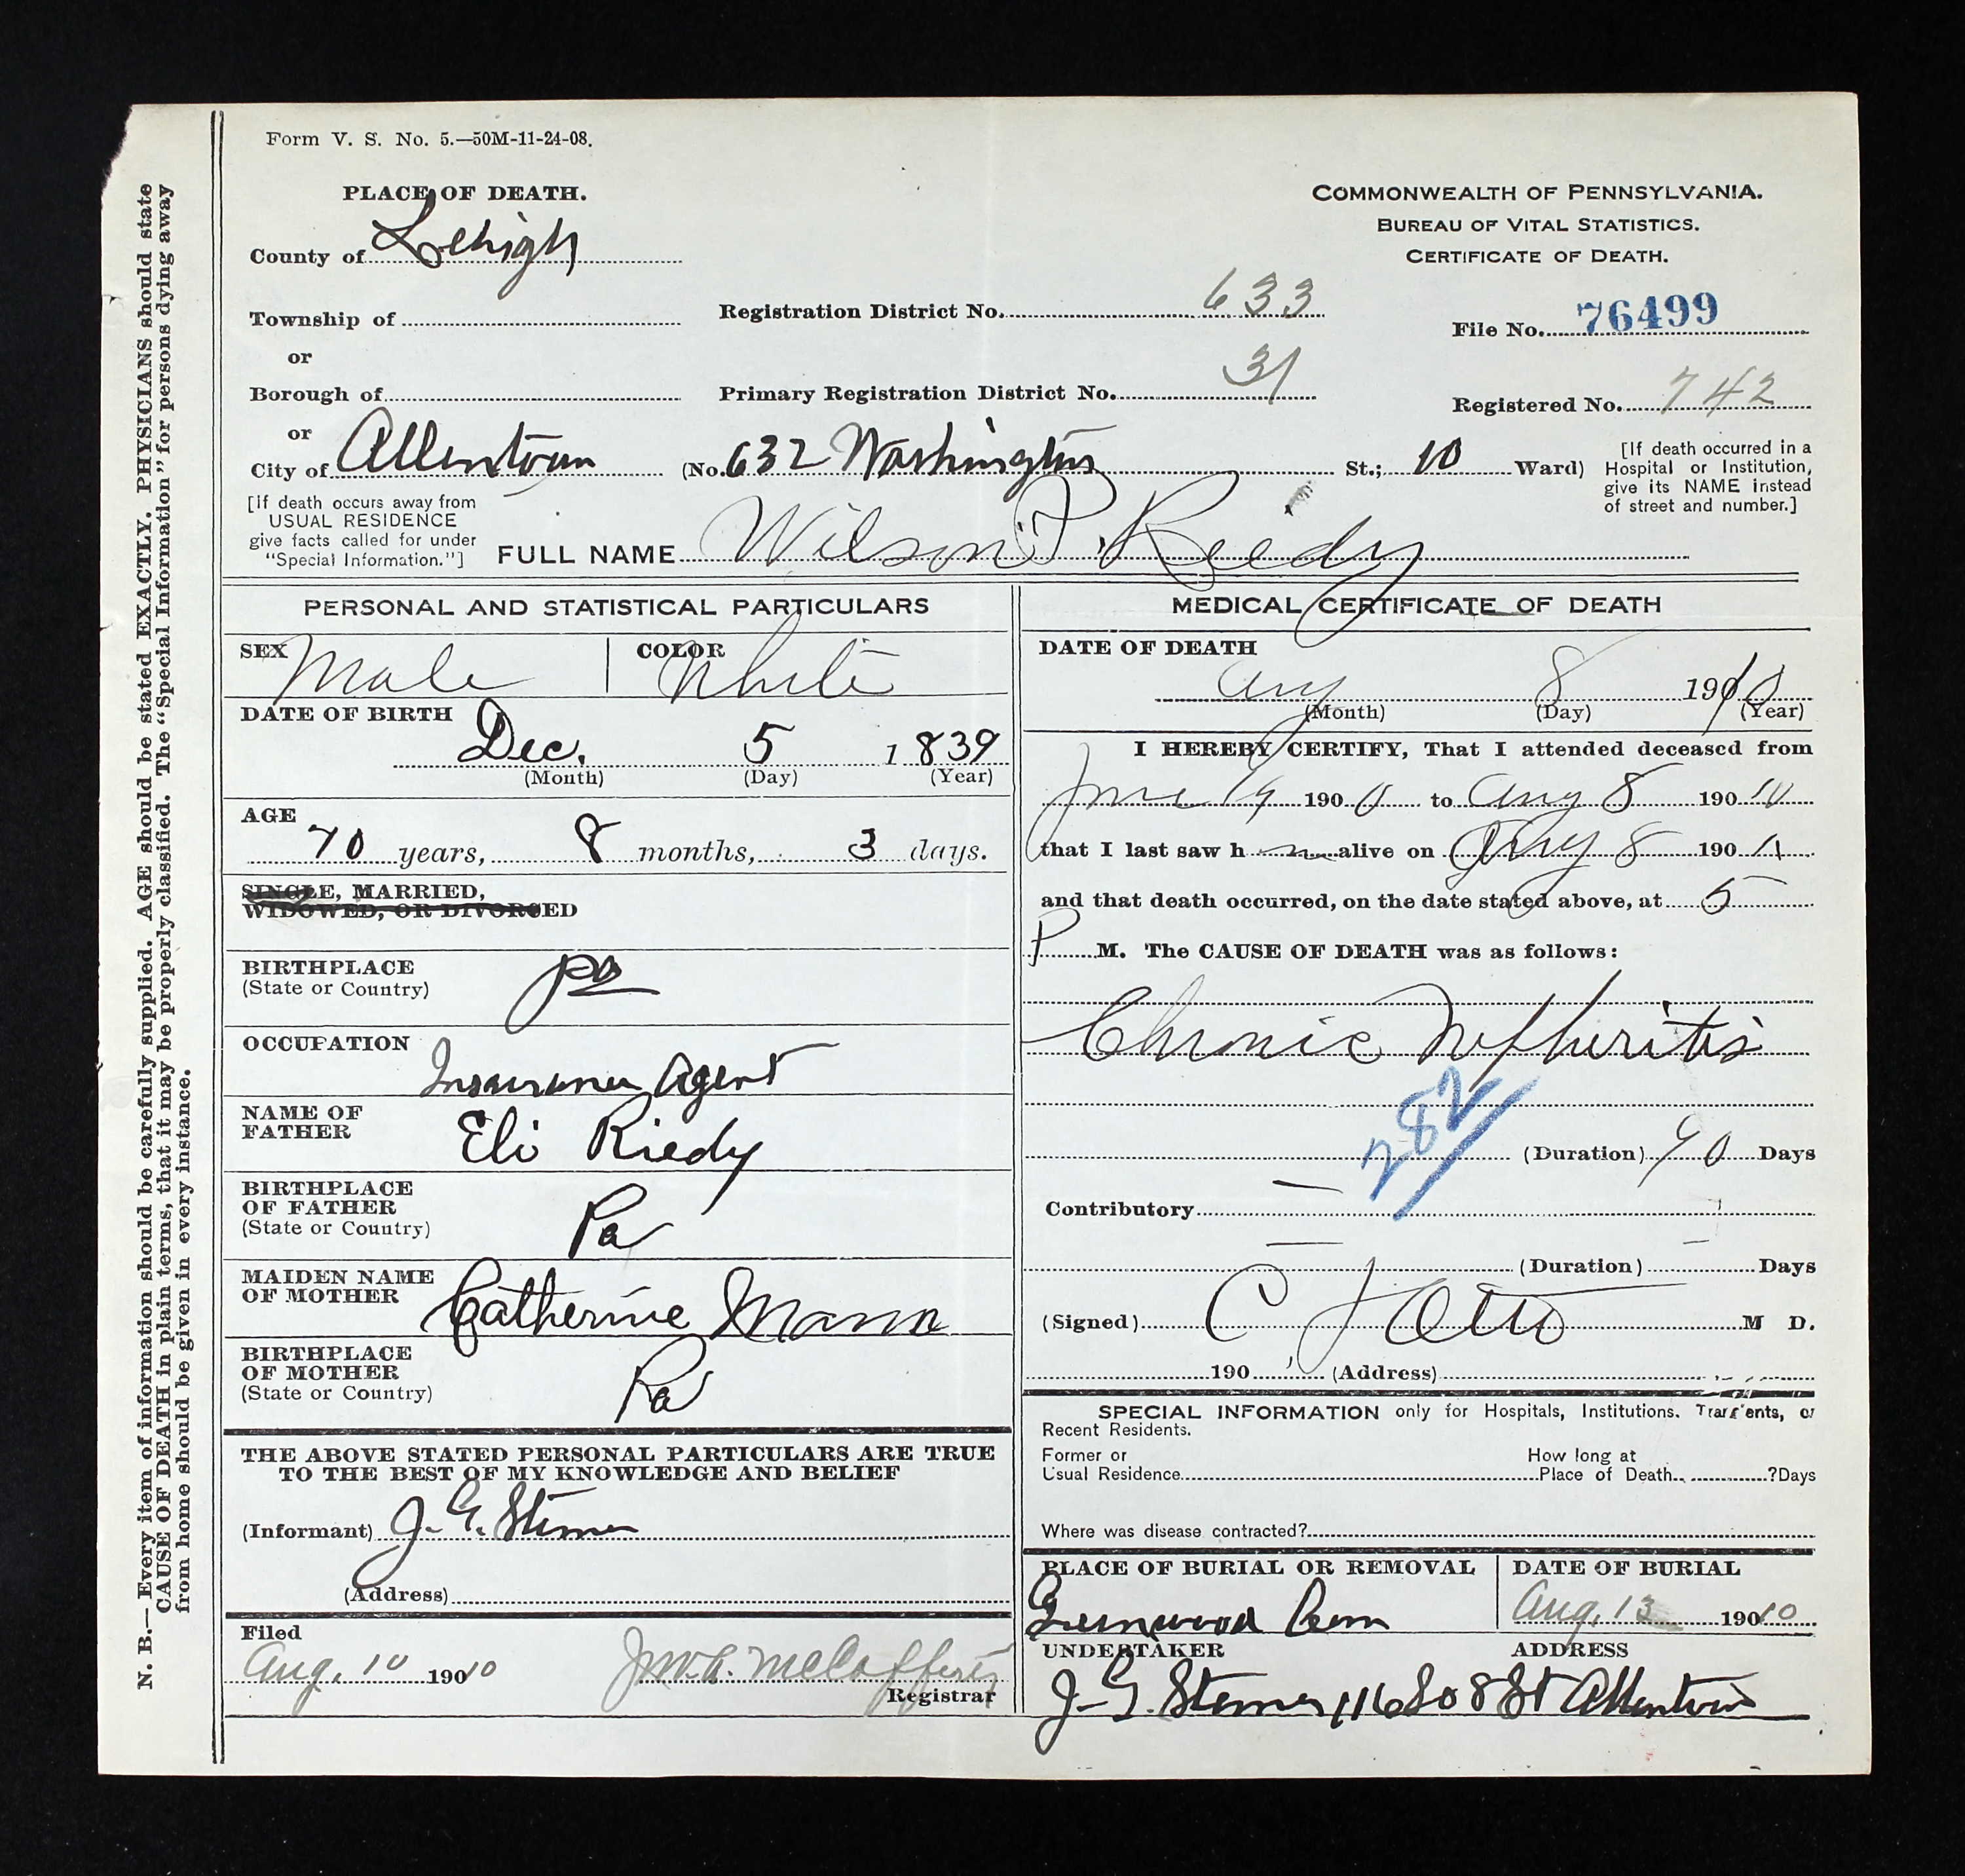 Form V. S. No. 5.—50M-11-24-08.
PLACE OF DEATH.
County of Lehigh
Township of
or
Borough of
or
City of Allentown
(No. 632 Washington St.; 10 Ward)
Registration District No. 633
Primary Registration District No. 31
COMMONWEALTH OF PENNSYLVANIA.
BUREAU OF VITAL STATISTICS.
CERTIFICATE OF DEATH.
File No. 76499
Registered No. 742
[If death occurred in a
Hospital or Institution,
give its NAME instead
of street and number.]
[If death occurs away from
USUAL RESIDENCE
give facts called for under
"Special Information."]
FULL NAME Wilson P. Reedy
PERSONAL AND STATISTICAL PARTICULARS
SEX Male
COLOR White
DATE OF BIRTH
Dec. 5 1839
(Month) (Day) (Year)
AGE
70 years, 8 months, 3 days.
SINGLE, MARRIED,
WIDOWED, OR DIVORCED
BIRTHPLACE
(State or Country)
Pa
OCCUPATION
Insurance Agent
NAME OF
FATHER
Eli Riedy
BIRTHPLACE
OF FATHER
(State or Country)
Pa
MAIDEN NAME
OF MOTHER
Catherine Mann
BIRTHPLACE
OF MOTHER
(State or Country)
Pa
THE ABOVE STATED PERSONAL PARTICULARS ARE TRUE
TO THE BEST OF MY KNOWLEDGE AND BELIEF
(Informant) J. G. Stemer
(Address)
Filed
Aug. 10 19010
Registrar
MEDICAL CERTIFICATE OF DEATH
DATE OF DEATH
Aug 8 1910
(Month) (Day) (Year)
I HEREBY CERTIFY, That I attended deceased from
June 19 190 0 to Aug 8 190 10
that I last saw h m alive on Aug 8 190
and that death occurred, on the date stated above, at 5
P M. The CAUSE OF DEATH was as follows:
Chronic Nefheritis
282
(Duration) 90 Days
Contributory —
— (Duration) — Days
(Signed) C J Otto M D.
190 (Address)
SPECIAL INFORMATION only for Hospitals, Institutions. Transients, or
Recent Residents.
Former or
Usual Residence
How long at
Place of Death ?Days
Where was disease contracted?
PLACE OF BURIAL OR REMOVAL
Greenwood Cem
DATE OF BURIAL
Aug. 13 19010
UNDERTAKER
J. G. Stemer
ADDRESS
116 So 8 St Allentown
N. B.—Every item of information should be carefully supplied. AGE should be stated EXACTLY. PHYSICIANS should state
CAUSE OF DEATH in plain terms, that it may be properly classified. The "Special Information" for persons dying away
from home should be given in every instance.